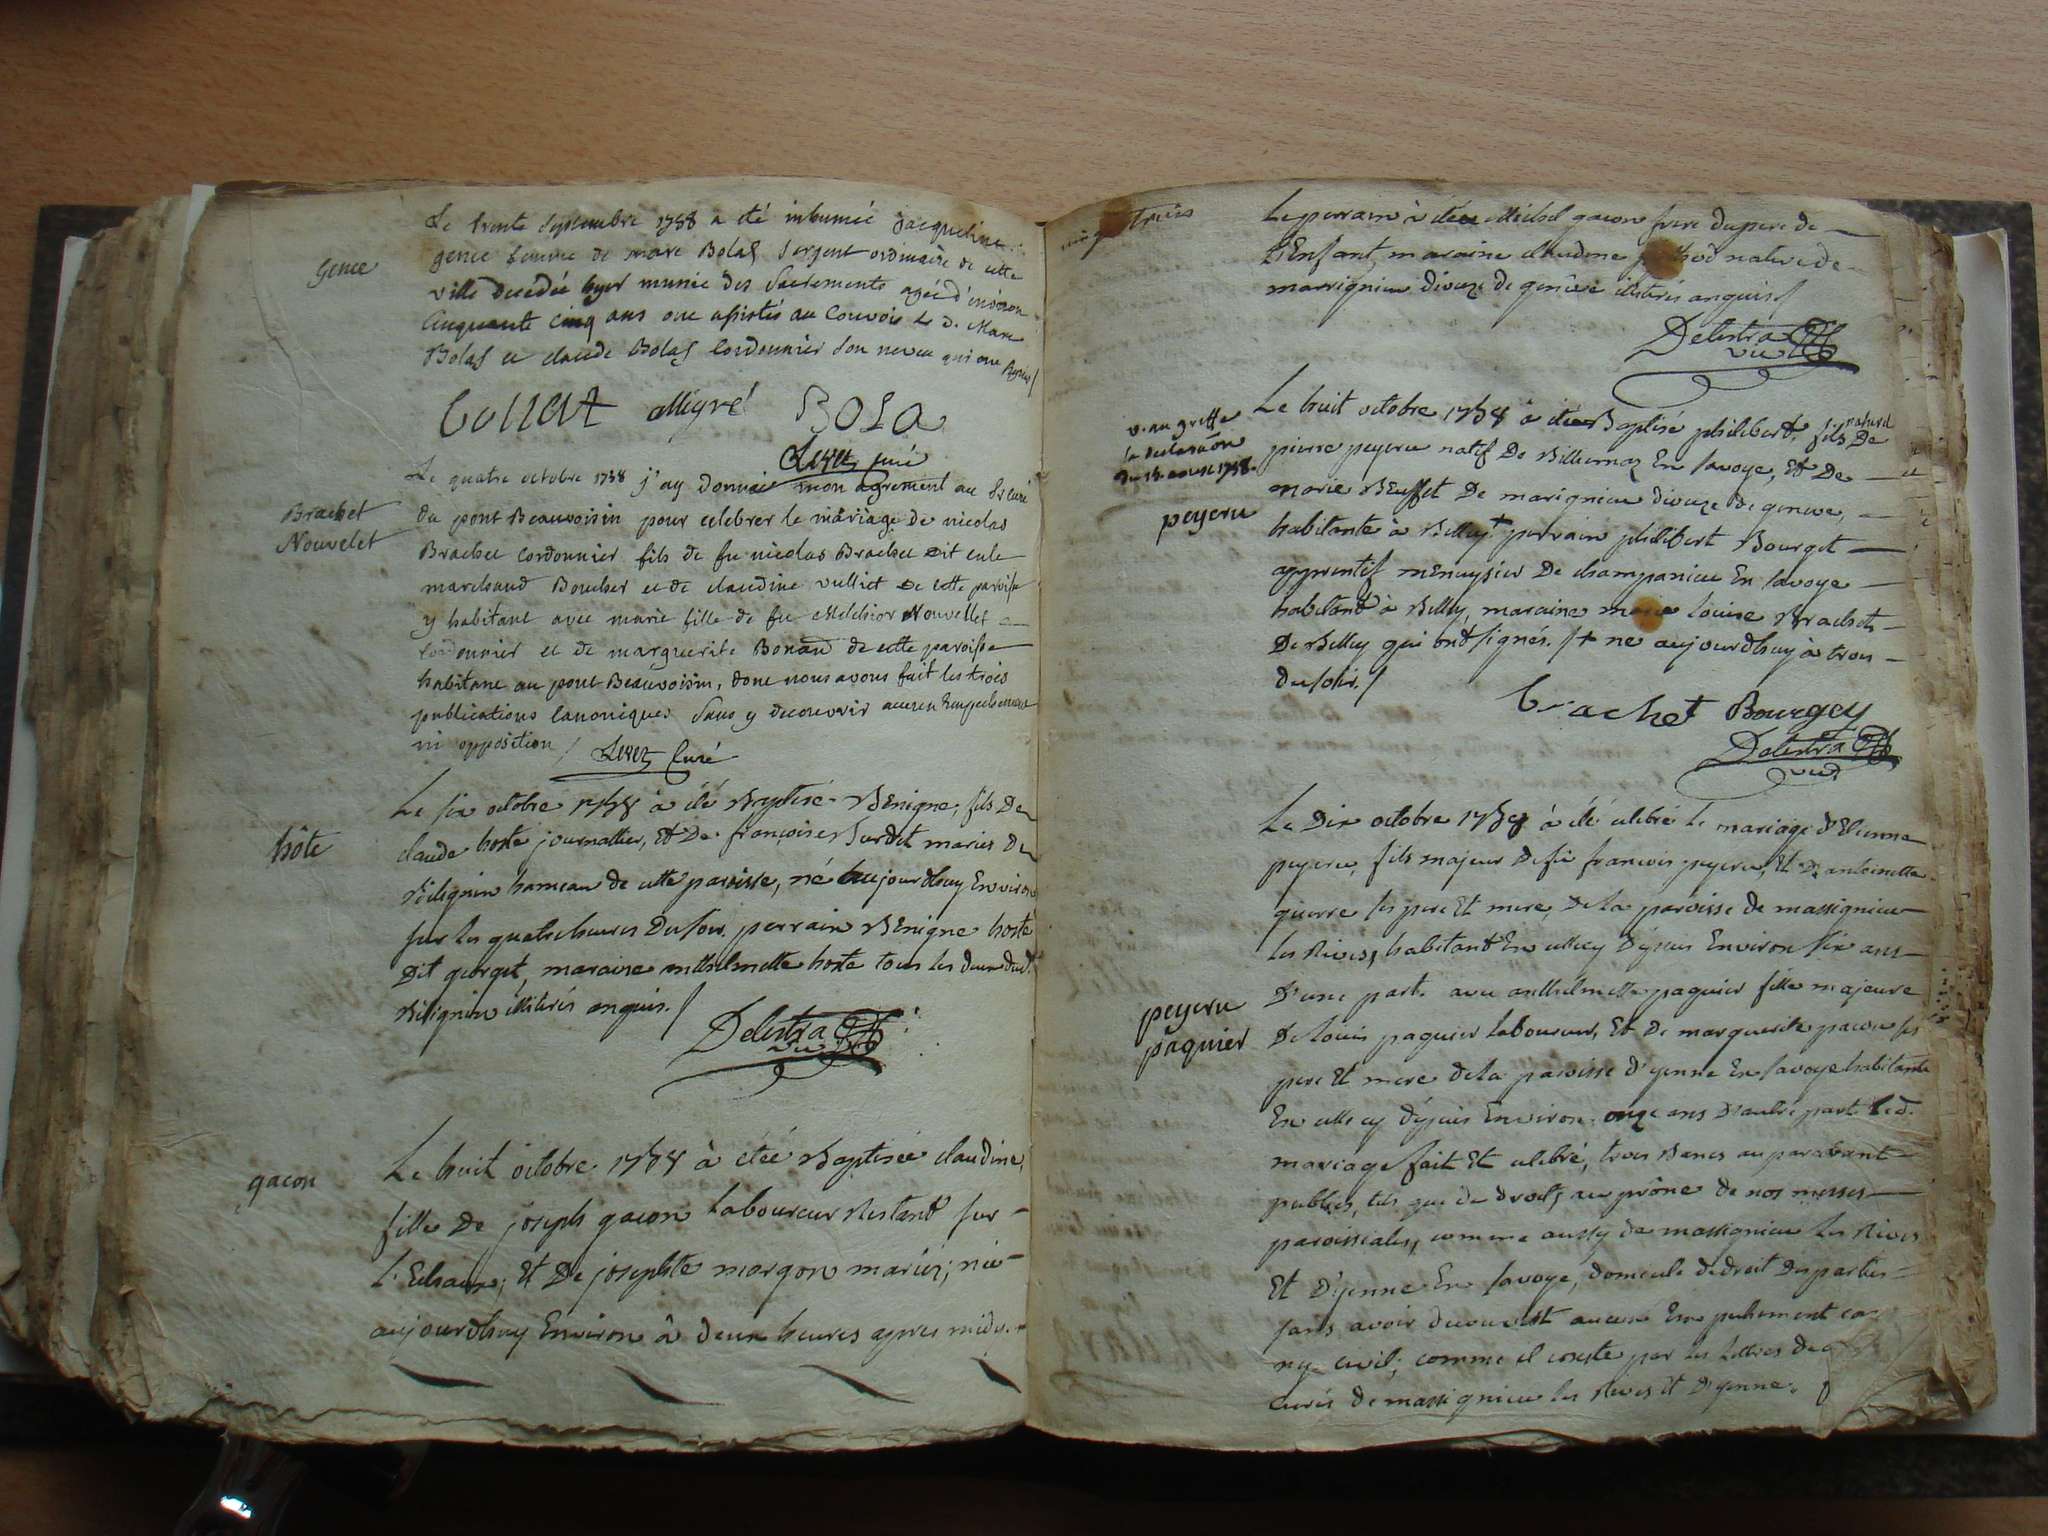 Gence
Le trente septembre 1758 a été inhumée Jacqueline
gence femme de marc Bolas Sergent ordinaire de cette
ville decedée hyer munie des Sacrements agée d'environ
cinquante cinq ans ont assistés au Convois le d. Marc
Bolas et claude Bolas Cordonnier son neveu qui ont signés /
Collet alligré BOLA
curé
Brachet
Nouvelet
Le quatre octobre 1758 j'ay donné mon agrement au Sr curé
du pont Beauvoisin pour celebrer le mariage de nicolas
Brachet cordonnier fils de fu nicolas Brachet dit
marchand Boucher et de claudine vulliet de cette paroisse
y habitant avec marie fille de fu Melchior Nouvellet
cordonnier et de marguerite Bonard de cette paroisse
habitant au pont Beauvoisin, dont nous avons fait les trois
publications canoniques sans y decouvrir aucun Empechement
ni opposition /
Curé
hôte
Le six octobre 1758 à été Baptisé Benigne, fils De
claude hoste journallier, Et De françoise Burdet mariés De
Bilignin hameau de cette paroisse, né aujourdhuy Environ
sur les quatre heures Du soir, perrain Benigne hoste
Dit gerget, maraine anthelmette hoste tous les deux dud.
Bilignin illiterés enquis. /
Delestra
vic.
gacon
Le huit octobre 1758 à étée Baptisée claudine,
fille De joseph gacon Laboureur Restant sur
l'Echaux, Et De josephte morgon mariés, née
aujourdhuy Environ à deux heures apres midy.
vingt trois
Le perrain à étée Michel gacon frere du pere de
L'Enfant, maraine claudine native de
marrignieu dioceze de genève illiterés enquis /
Delestra
vic
v. au greffe
la declaraōn
du 18. aoust 1758.
peyeru
Le huit octobre 1758 à étée Baptisé philibert, fils naturel De
pierre peyeru natif De Billiemaz En savoye, Et De
marie Beuffet De marignieu dioceze de geneve,
habitante à Belley + perrain philibert Bourget
apprentif menuysier De champanieu En savoye
habitand à Belley, maraine marie louise Brachet
De Belley qui ont signés. / + né aujourdhuy à trois
du soir. /
Brachet Bourgey
Delestra
vic.
peyeru
paquier
Le Dix octobre 1758 à été celebré le mariage d'Etienne
peyeru, fils majeur de fu francois peyeru, Et D'antoinette
guerre ses pere Et mere, De la paroisse de massignieu
les Rives, habitant En celle cy Depuis Environ six ans
D'une part. avec anthelmette paquier fille majeure
De louis paquier laboureur, Et de marguerite pacou ses
pere Et mere de la paroisse d'yenne En savoye habitante
En celle cy depuis Environ onze ans D'autre part. Led.
mariage fait Et celebré, trois Bancs au paravant
publiés, tels que de droit, au prône de nos messes
paroissiales, comme aussy de massignieu les Rives
Et D'yenne En savoye, domicile de droit Des parties
sans avoir decouvert aucun Empechement ca-
ny civil; comme il conste par les Lettres des
curés de massignieu les Rives et D'yenne.